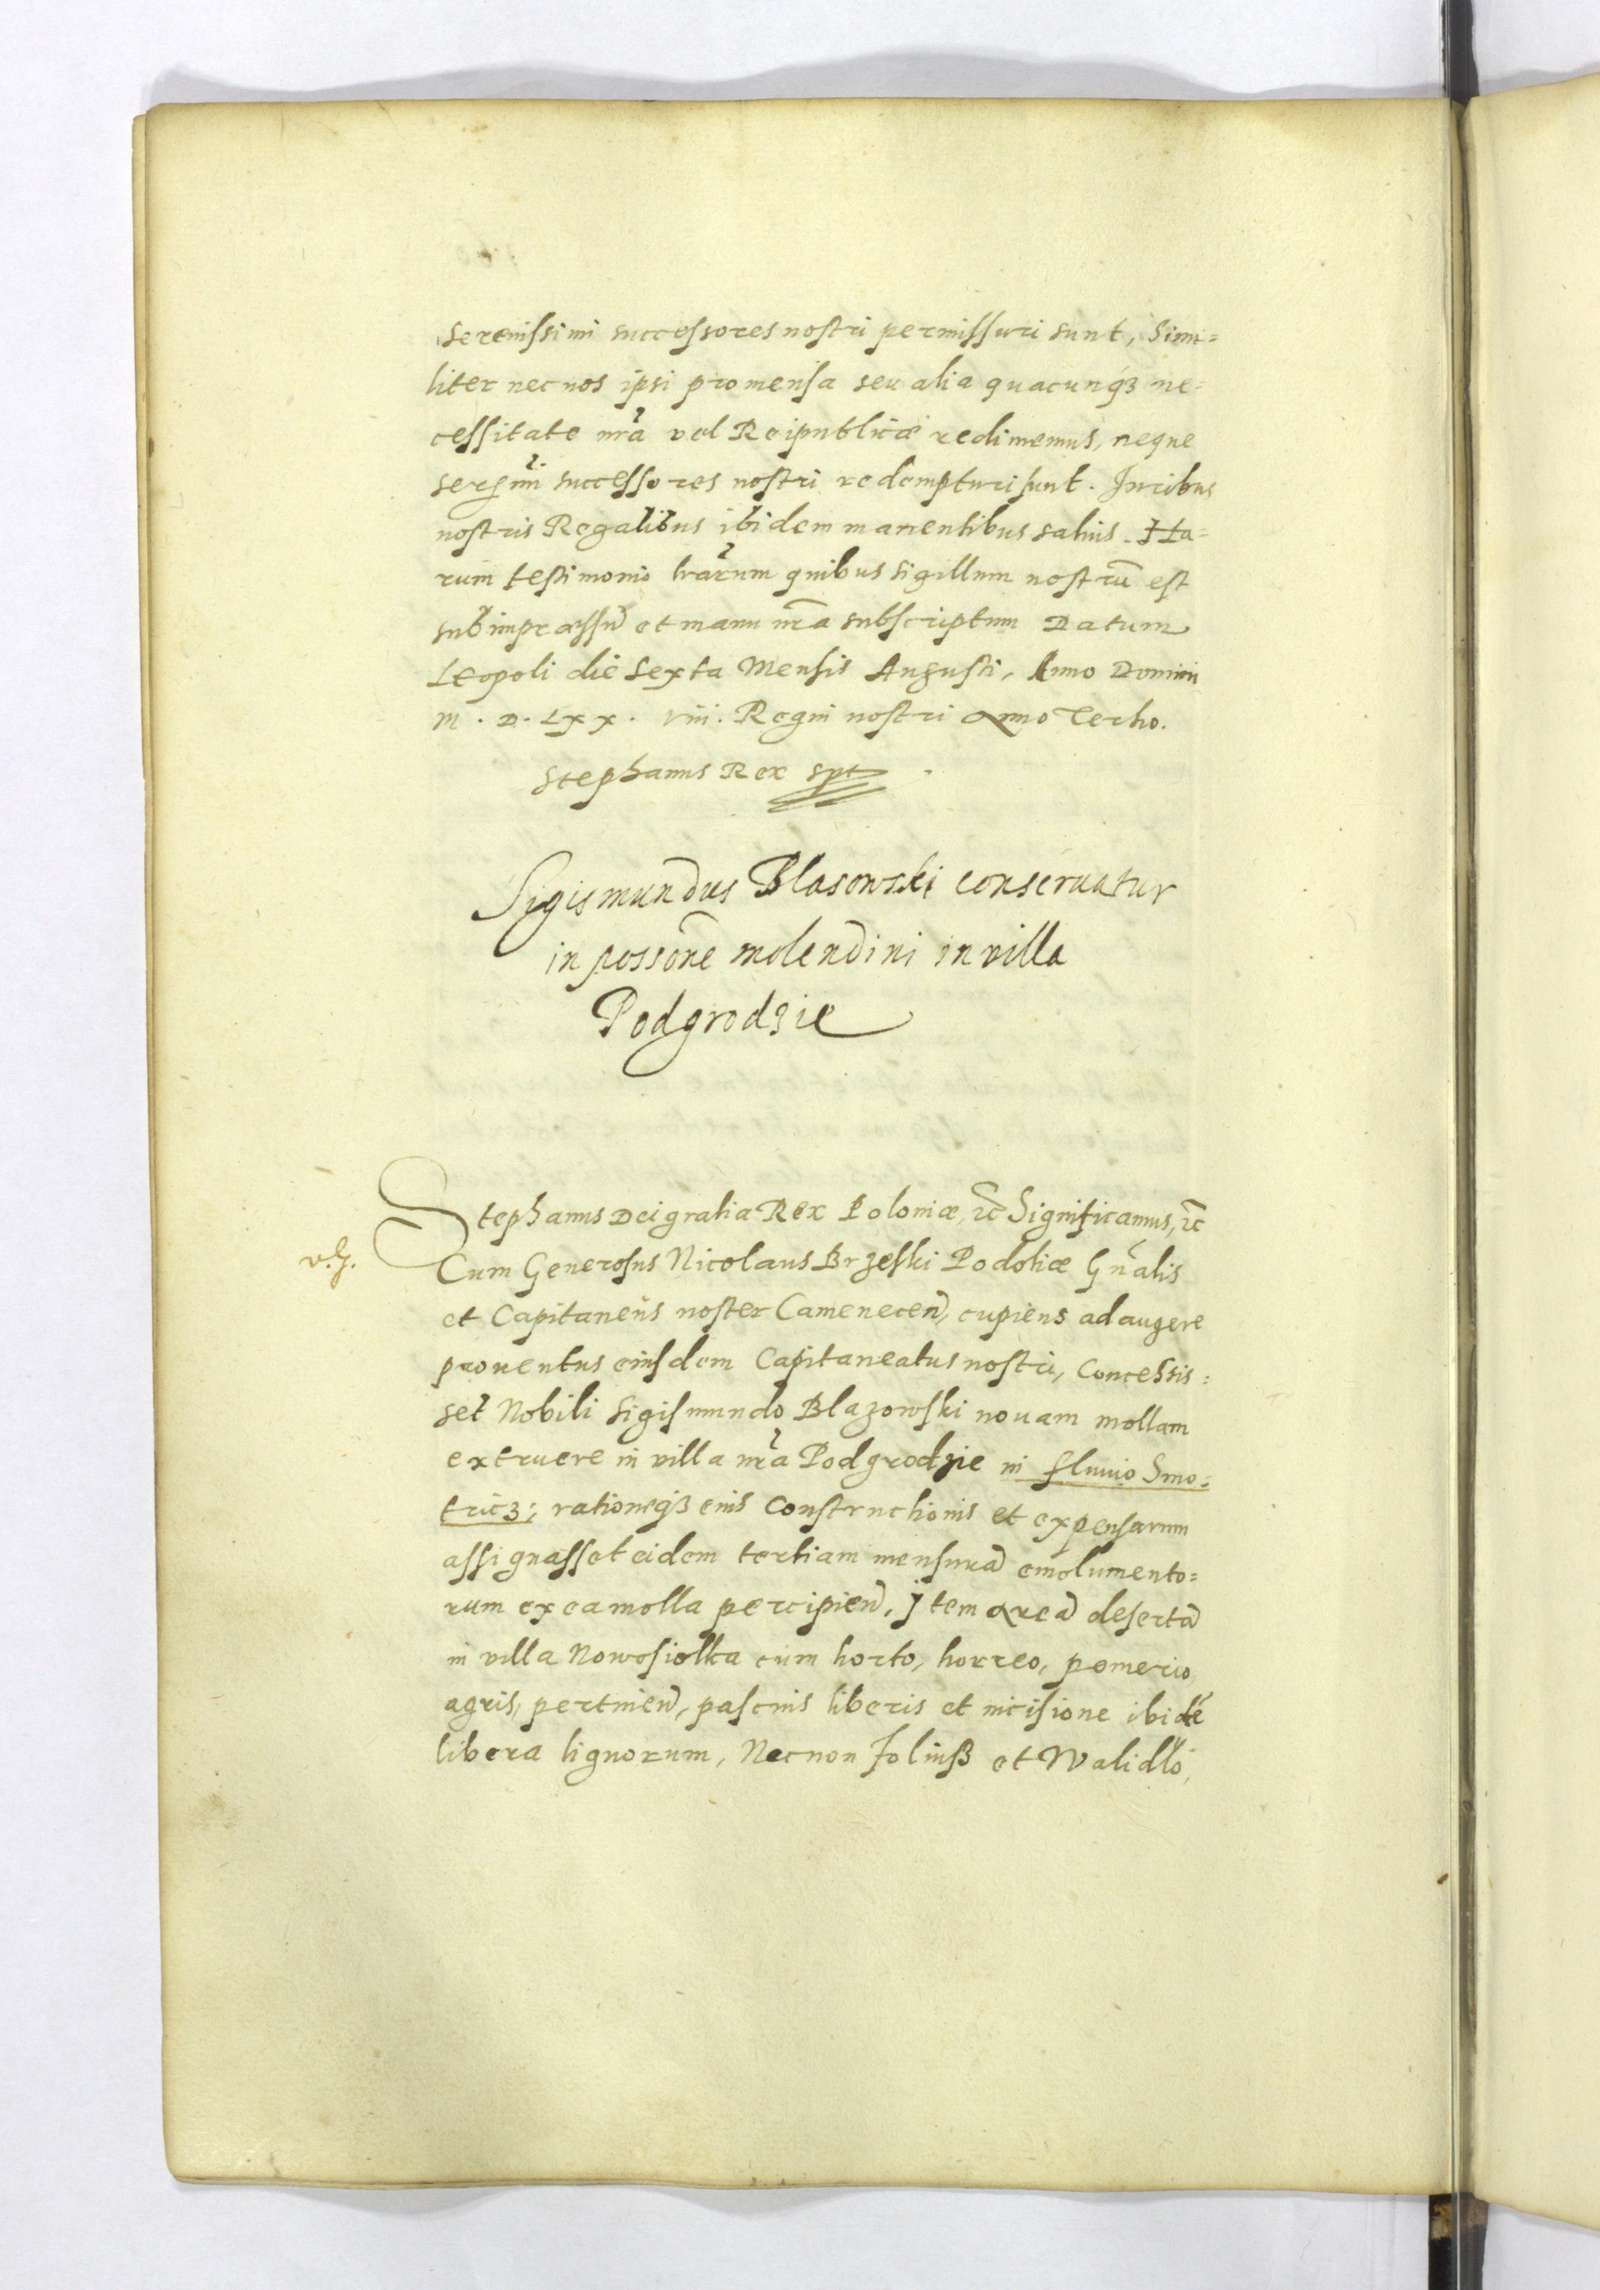 Serenissimi successores nostri permissuri sunt, Simi=
liter nec nos ipsi pro mensa seu alia quacunq3 ne=
cessitate nrã vel Reipublicæ redimemus, neque
sermi successores nostri redempturi sunt. Juribus
nostris Regalibus ibidem manentibus salvis. Ha=
rum testimonio lrãrum quibus sigillum nostrũ est
subimpræssũ et manu nrã subscriptum Datum
Leopoli die Sexta Mensis Augusti, Anno Domini
M. D. LXX. viii. Regni nostri Anno Tertio.
Stephanus Rex spt
Sigismundus Blasowski conseruatur
in possone molendini in villa
Podgrodzie
Stephanus Dei gratia Rex Poloniæ, etc Significamus, etc
v. g.
Cum Generosus Nicolaus Brzeski Podoliæ Gñalis
et Capitaneus noster Camenecen, cupiens adaugere
prouentus eiusdem Capitaneatus nostri, Concessis=
set Nobili Sigismundo Blazowski nouam mollam
extruere in villa nrã Podgrodzie in fluuio Smo=
tricz; rationeq3 eius Constructionis et expensarum
assignasset eidem tertiam mensurã emolumento=
rum ex ea molla percipien, Jtem areã desertã
in villa Nowosiolka cum horto, horreo, pomerio
agris, pertinen, pascuis liberis et incisione ibidẽ
libera lignorum, Necnon et